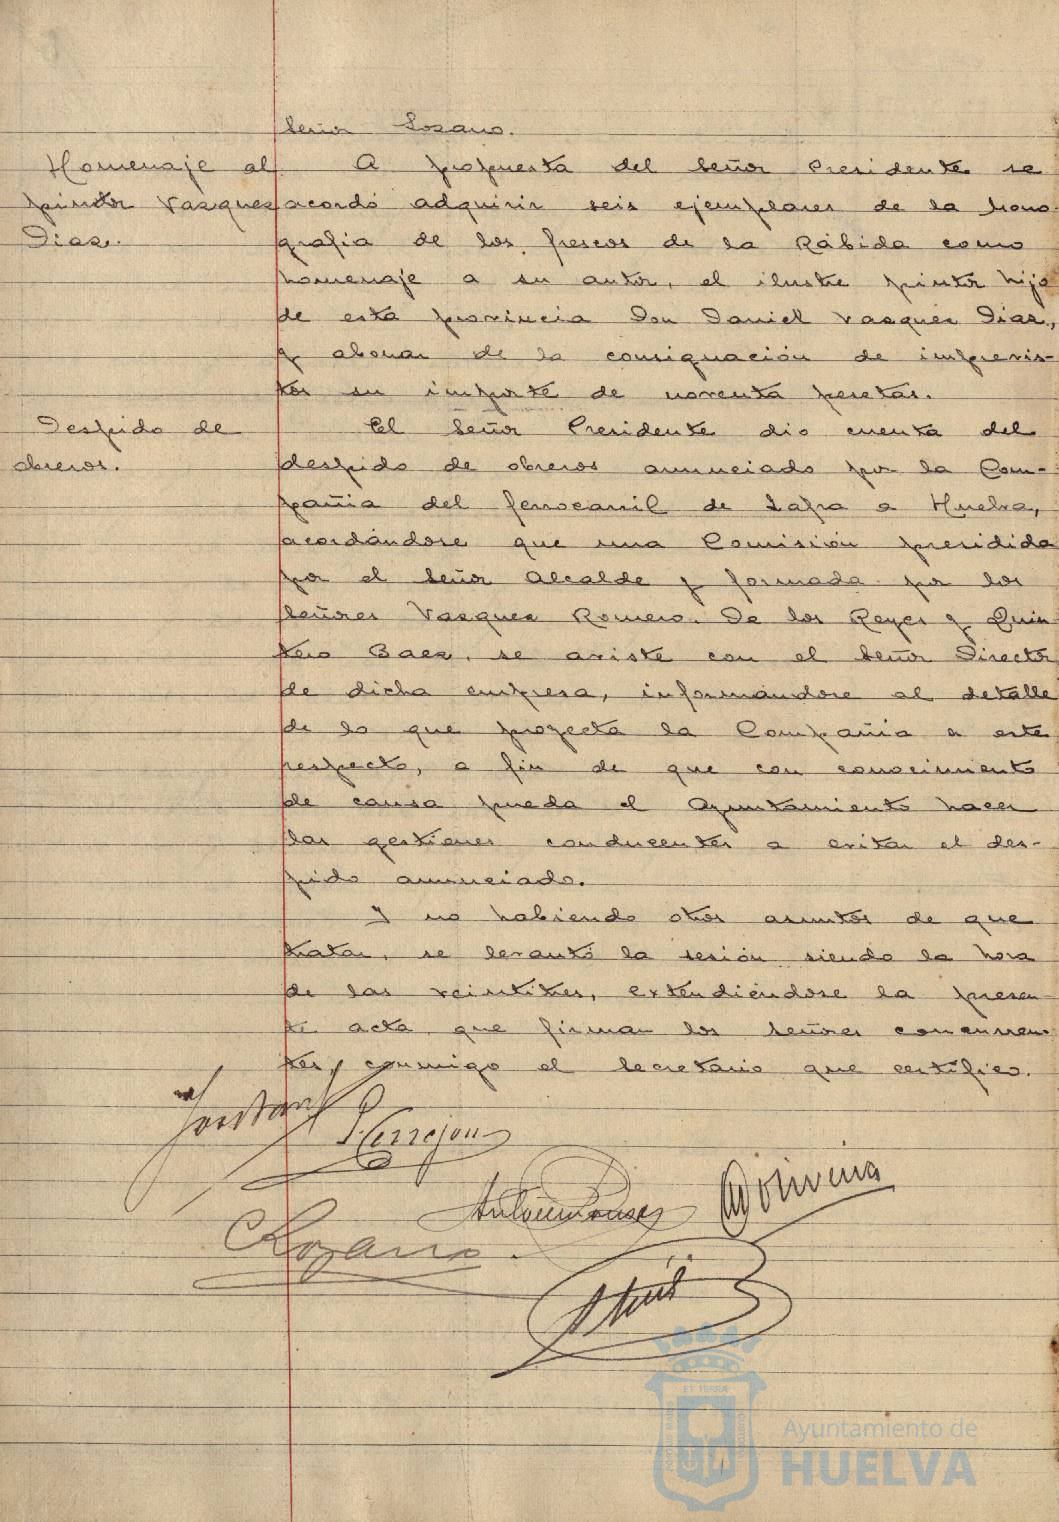 Señor Lozano.
Homenaje al
pintor Vazquez
Diaz.
A propuesta del Señor Presidente se
acordó adquirir seis ejemplares de la mono-
grafia de los frescos de la Rábida como
homenaje a su autor, el ilustre pintor hijo
de esta provincia Don Daniel Vazquez Diaz,
y abonar de la consignación de imprevis-
tos su importe de noventa pesetas.
Despido de
obreros.
El Señor Presidente dio cuenta del
despido de obreros anunciado por la Com-
pañia del ferrocarril de Zafra a Huelva,
acordándose que una Comisión presidida
por el Señor Alcalde y formada por los
Señores Vazquez Romero, De los Reyes y Quin
tero Baez, se aviste con el Señor Director
de dicha empresa, informándose al detalle
de lo que proyecta la Compañia a este
respecto, a fin de que con conocimiento
de causa pueda el Ayuntamiento hacer
las gestiones conducentes a evitar el des-
pido anunciado.
Y no habiendo otros asuntos de que
tratar, se levantó la sesión siendo la hora
de las veintitres, extendiéndose la presen
te acta que firman los Señores concurren-
tes, conmigo el Secretario que certifico.
P. Cerrejon
Antonio
Oliveira
C Lozano.
Ayuntamiento de
HUELVA